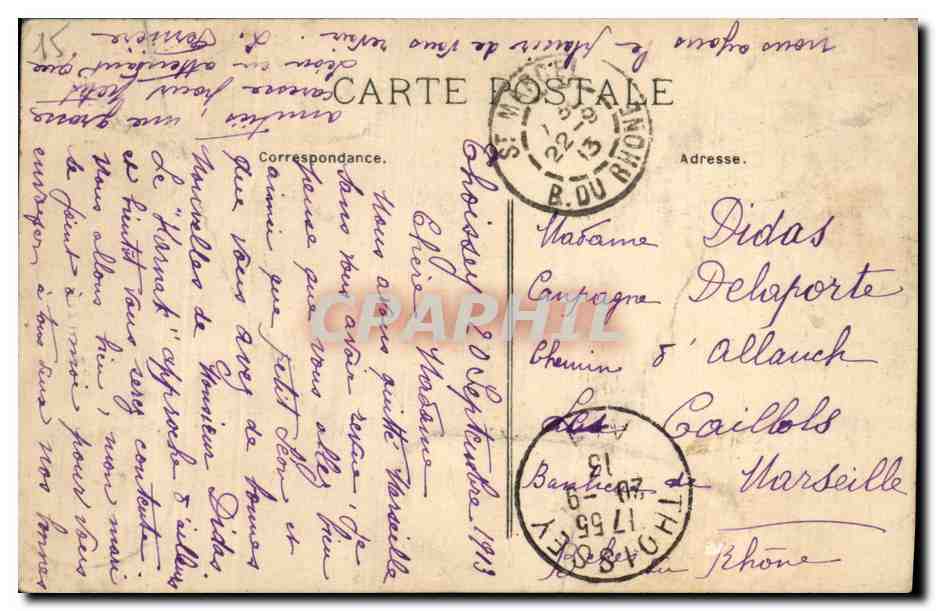 CARTE POSTALE
Correspondance.
Adresse.
Thoissey 20 Septembre 1913
Chère Madame
Nous avons quitté Marseille
sans vous avoir revue. Je
pense que vous allez bien
ainsi que petit Léon et
que vous avez de bonnes
nouvelles de Monsieur Didas
Le "Karnak" approche d'ailleurs
et bientôt vous serez contente
Nous allons bien, mon mari
se joint à moi pour vous
envoyer à tous deux nos bonnes
amitiés, une grosse
caresse pour petit
Léon en attendant que
nous ayons le plaisir de vous revoir. L.
Madame Didas
Campagne Delaporte
Chemin d'allauch
Les Caillols
Banlieue de Marseille
Bches du Rhône
ST MARCEL
B. DU RHONE
22 - 9
13
THOISSEY
17 55
20 - 9
13
15
CPARPHIL